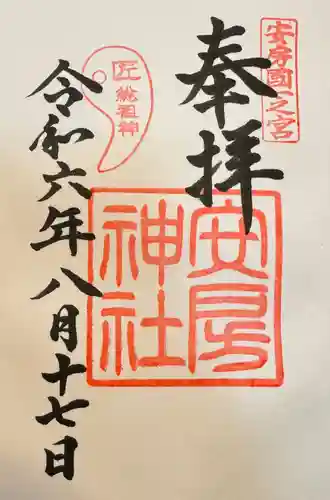 安房國一之宮
奉拝
安房
神社
匠総祖神
令和六年八月十七日